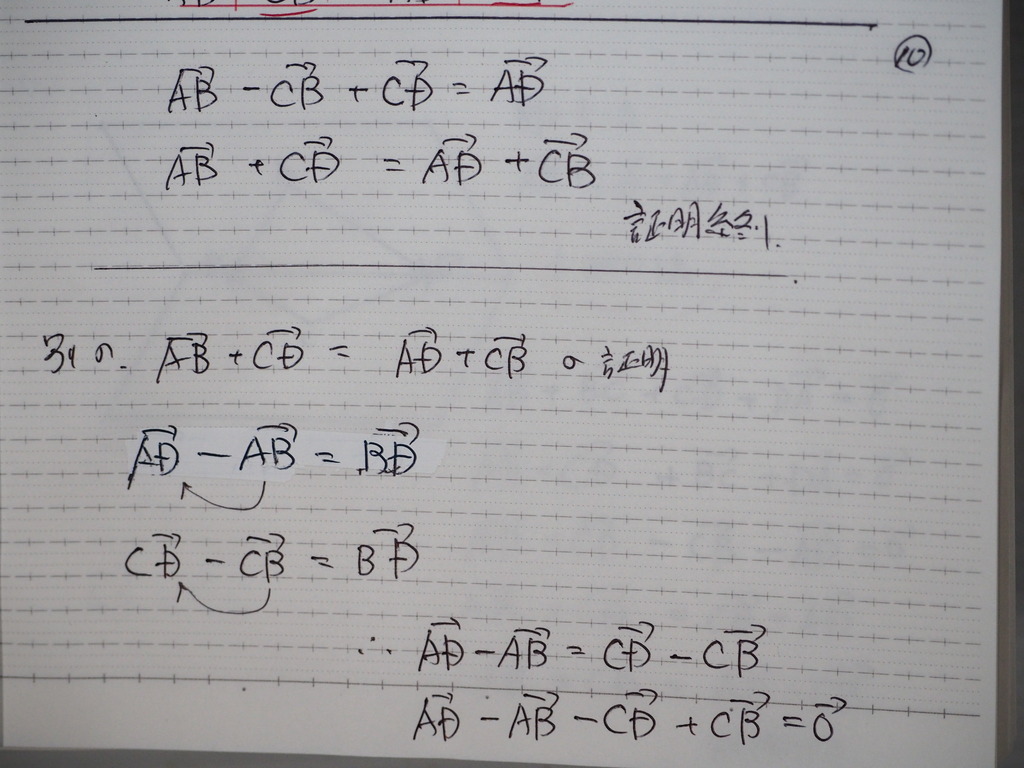 ⑩
$\overrightarrow{AB} - \overrightarrow{CB} + \overrightarrow{CD} = \overrightarrow{AD}$
$\overrightarrow{AB} + \overrightarrow{CD} = \overrightarrow{AD} + \overrightarrow{CB}$
証明終り.
別の. $\overrightarrow{AB} + \overrightarrow{CD} = \overrightarrow{AD} + \overrightarrow{CB}$ の証明
$\overrightarrow{AD} - \overrightarrow{AB} = \overrightarrow{BD}$
$\overrightarrow{CD} - \overrightarrow{CB} = \overrightarrow{BD}$
$\therefore \overrightarrow{AD} - \overrightarrow{AB} = \overrightarrow{CD} - \overrightarrow{CB}$
$\overrightarrow{AD} - \overrightarrow{AB} - \overrightarrow{CD} + \overrightarrow{CB} = \overrightarrow{0}$